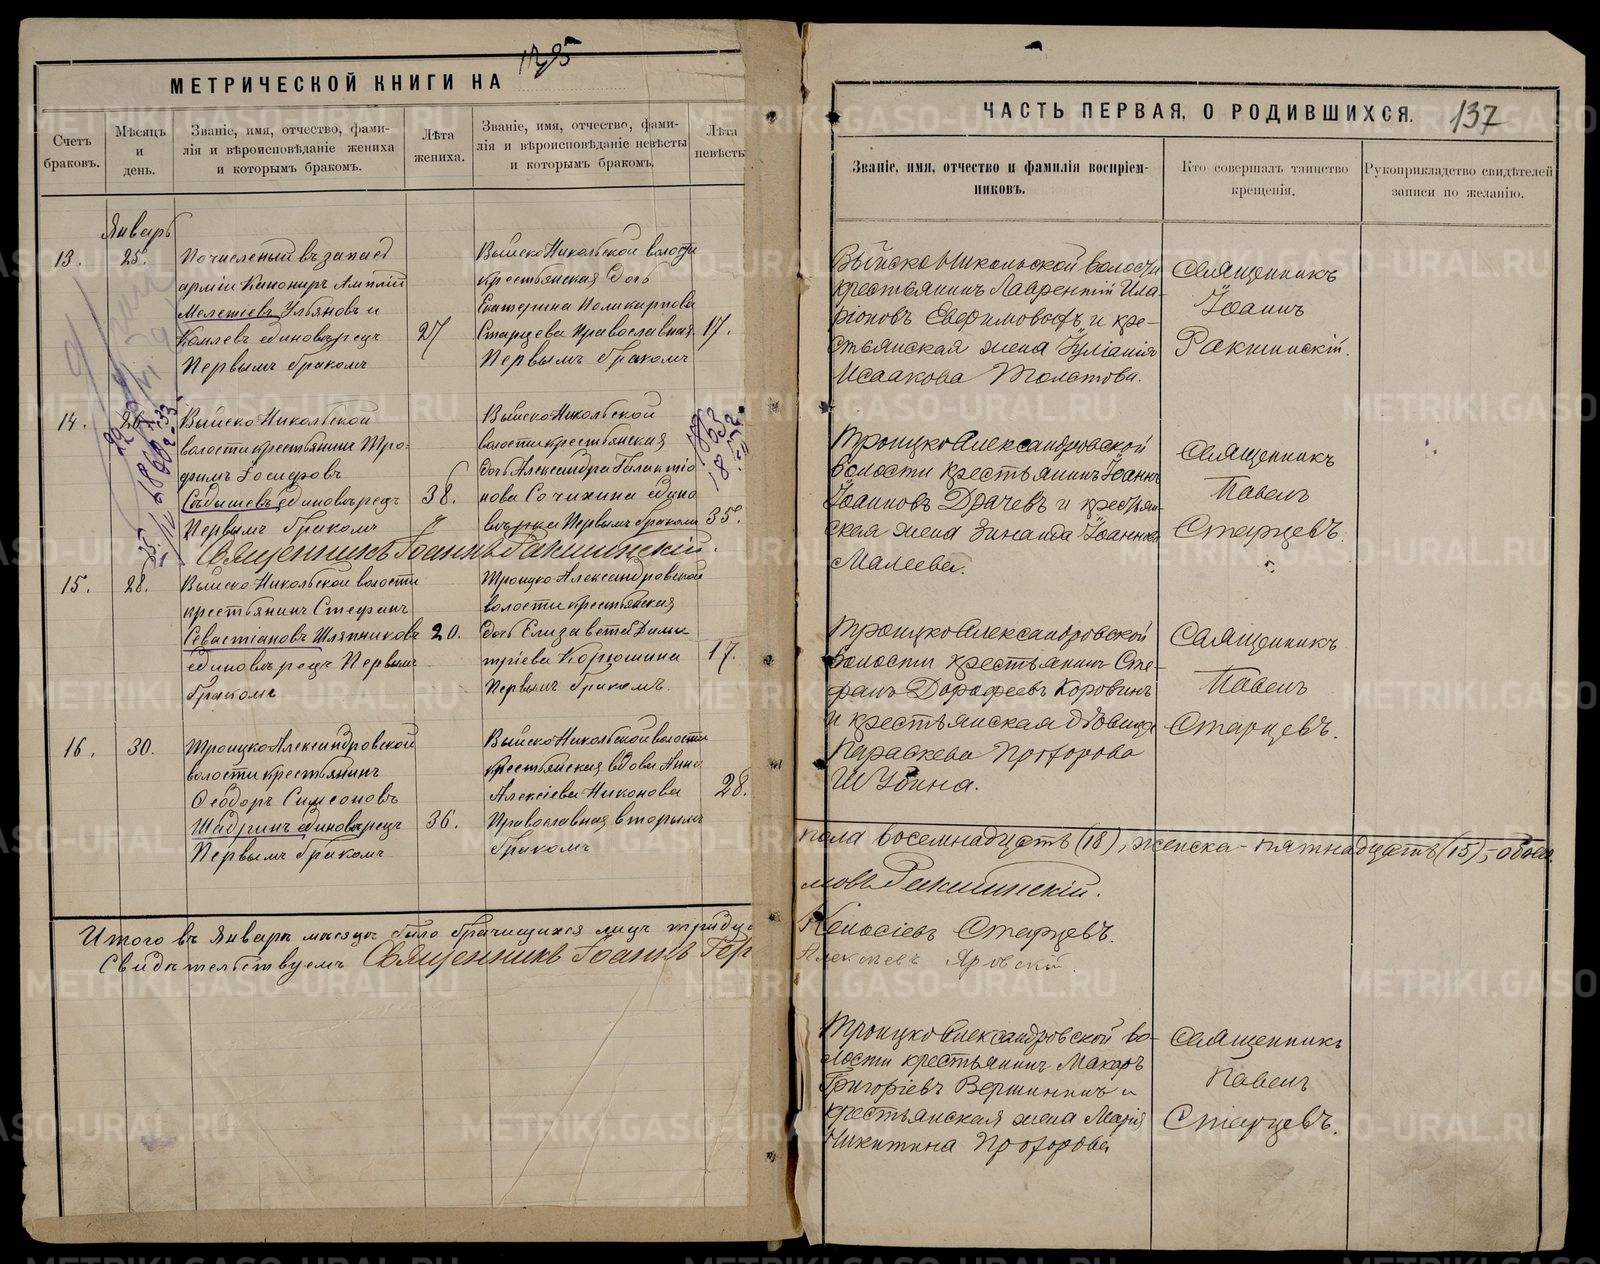 МЕТРИЧЕСКОЙ КНИГИ НА
Счетъ браковъ.
Мѣсяцъ и день.
Званіе, имя, отчество, фами-
лія и вѣроисповѣданіе жениха
и которымъ бракомъ.
Лѣта жениха.
Званіе, имя, отчество, фами-
лія и вѣроисповѣданіе невѣсты
и которымъ бракомъ.
Лѣта невѣсты
Январь
13. 25.
Почисленый въ запасъ
арміи Канониръ
Мелетіевъ Ульяновъ и
единовѣрецъ
Первымъ бракомъ
27
Выйско Никольской волости
крестьянская дочь
Екатерина Поликарпова
Старцева Православная
Первымъ бракомъ
17.
14.
Выйско Никольской
волости крестьянинъ Тро-
фимъ Іосифовъ
единовѣрецъ
Первымъ бракомъ
38.
Выйско Никольской
волости крестьянская
дочь Александра Галактіо
нова Сочихина едино
вѣрка Первымъ бракомъ
35.
Священникъ Іоаннъ Ракшинскій.
15. 28.
Выйско Никольской волости
крестьянинъ Стефанъ
Севастіановъ Шляпниковъ
единовѣрецъ Первымъ
бракомъ
20.
Троицко-Александровской
волости крестьянская
дочь Елизавета Дими
тріева Корюшина
Первымъ бракомъ.
17.
16. 30.
Троицко Александровской
волости крестьянинъ
Ѳеодоръ Симеоновъ
Шадринъ единовѣрецъ
Первымъ бракомъ
36.
Выйско Никольской волости
крестьянская вдова Анна
Алексіева Никонова
Православная вторымъ
бракомъ
28.
Итого въ Январѣ мѣсяцѣ было брачищихся лицъ тридц
Свидѣтельствуемъ Священникъ Іоаннъ
ЧАСТЬ ПЕРВАЯ, О РОДИВШИХСЯ.
137
Званіе, имя, отчество и фамилія воспріем-
никовъ.
Кто совершалъ таинство
крещенія.
Рукоприкладство свидѣтелей
записи по желанію.
Выйско Никольской волости
крестьянинъ Лаврентій Ила-
ріоновъ и кре-
стьянская жена Іуліанія
Исаакова Толстова.
Священникъ
Іоаннъ
Ракшинскій.
Троицко Александровской
волости крестьянинъ Іоаннъ
Іоанновъ Драчевъ и крестьян-
ская жена Зинаида Іоаннова
Малеева.
Священникъ
Павелъ
Старцевъ.
Троицко Александровской
волости крестьянинъ Сте-
фанъ Дорофеевъ Коровинъ
и крестьянская дѣвица
Параскева Прохорова
Шубина.
Священникъ
Павелъ
Старцевъ.
пола восемнадцать (18), женска - пятнадцать (15), - обоего
Ракшинскій.
Старцевъ.
Алексѣевъ Яровскій.
Троицко Александровской во-
лости крестьянинъ Макаръ
Григоріевъ Вершининъ и
крестьянская жена Марія
Никитина Прохорова
Священникъ
Павелъ
Старцевъ.
METRIKI.GASO-URAL.RU